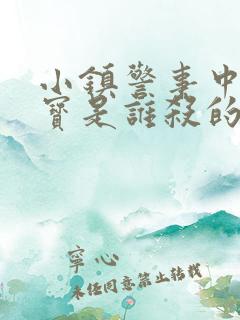 小鎮警事中
寶是誰殺的
寧心
未經同意禁止转载